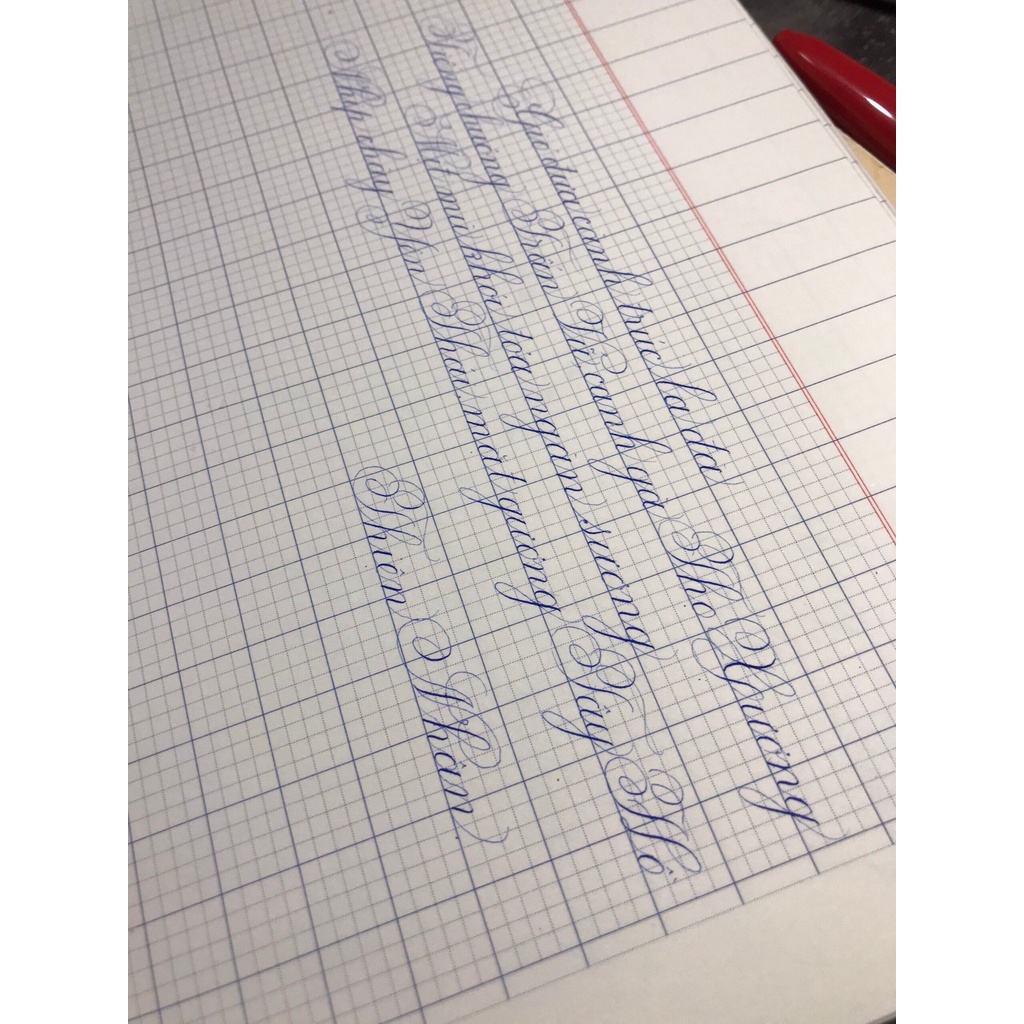 Gió đưa cành trúc la đà
Tiếng chuông Trấn Vũ canh gà Thọ Xương
Mịt mù khói tỏa ngàn sương
Nhịp chày Yên Thái mặt gương Tây Hồ
Thiện Nhân